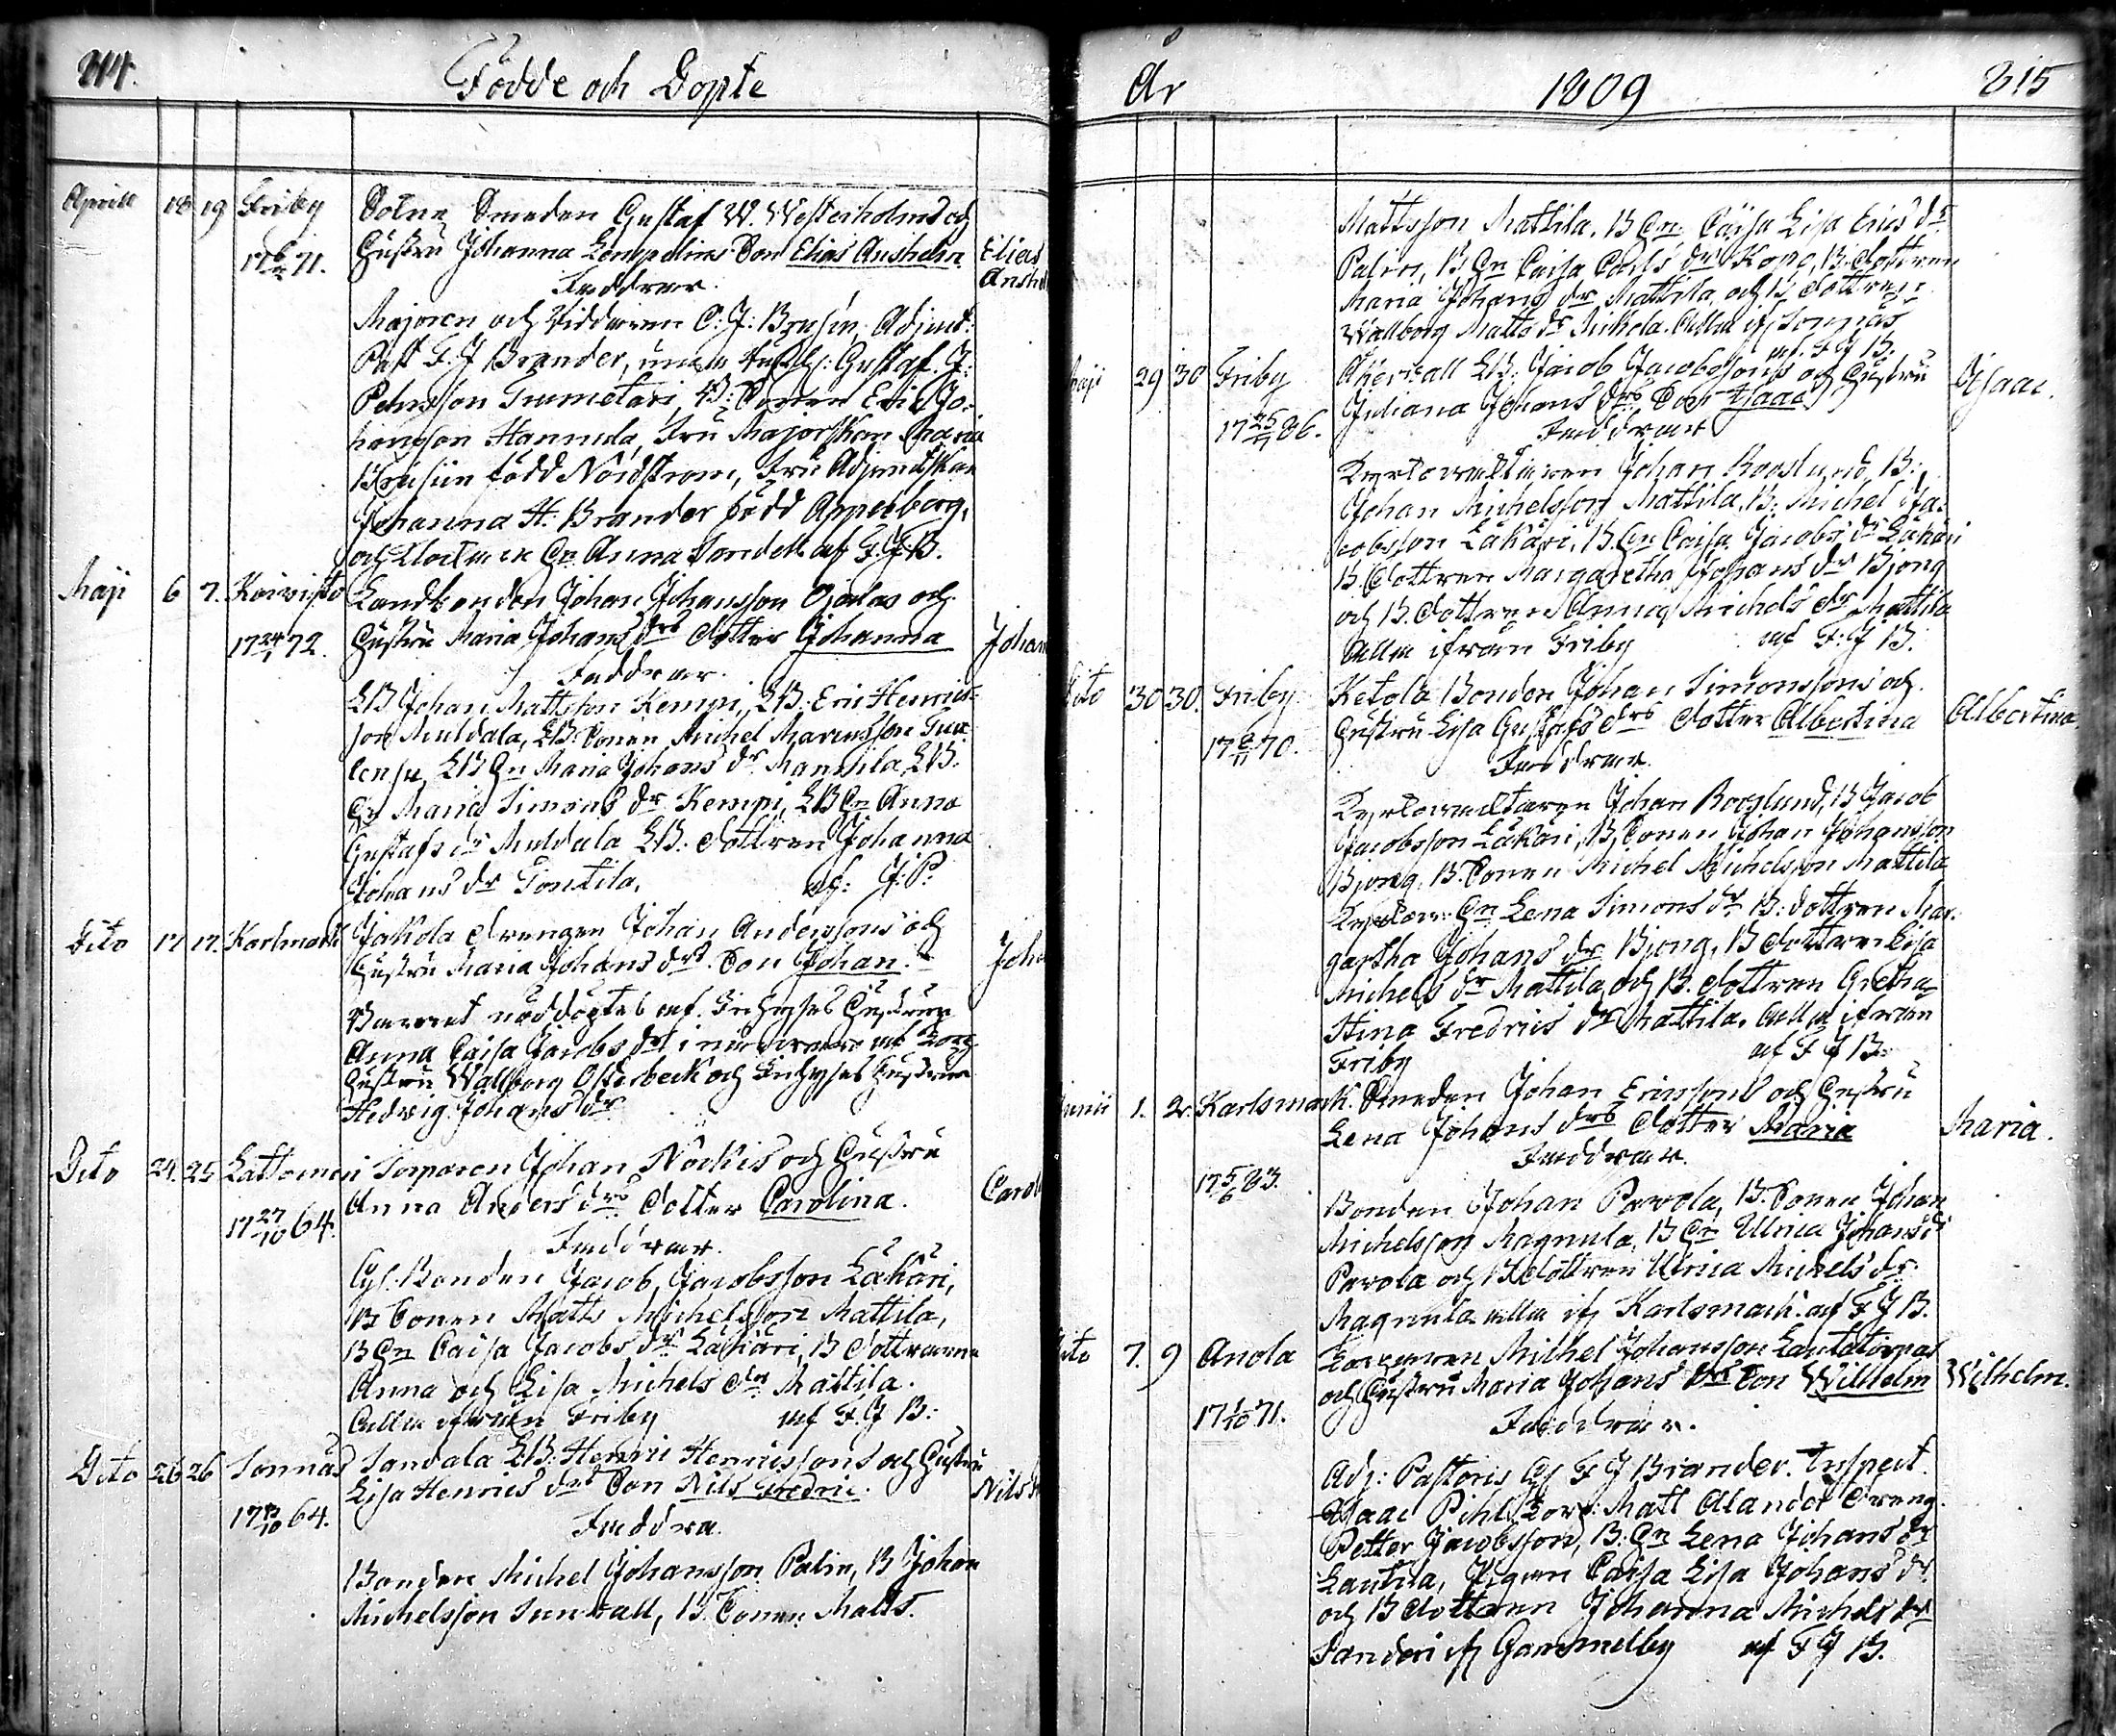 314.
Födde och Döpte
Aprill 18 19 Friby Sotne Smeden Gustaf W. Westerholms och
17 71. Hustru Johanna Lempelins Son Elias Anshelm. Elias
Faddrar. Ansh
Majoren och Riddaren C: J: Brusin, Adjunct:
Past F. J Brander, Gustaf. J:
Pehrsson B: Sonen Eric Jo-
hansson Hannula, Fru Majorskan Maria
Brusiin född Nordstrom, Fru Adjunctskan
Johanna H. Brander född Appelberg,
och Hn Anna Sondell af F. J. B.
Maji 6 7. Koivisto Landbonden Johan Johansson Ojalas och
17 24/1 72. Hustru Maria Johans drs dotter Johanna Johan
Faddrar.
LB Johan Mattsson Kempi, LB. Eric Henrics-
son Muldala, LB. Sonen Michel
LB Hn Maria Johans dr Mannila, LB.
Hn Maria Simons dr Kempi, LB Hn Anna
Gustafs dr Muldala LB. dottren Johanna
Johans dr Tontila. af: J: P:
Dito 17 17. Karlmark Jakola drengen Johan Anderssons och
Hustru Maria Johans drs. Son Johan. Joha
Barnet nöddöptes af Inhyses Hustrun
Anna Caisa Jacobs dr i närvaro af Torp
Hustru Wallborg Osterbeck och Inhyses Hustrun
Hedvig Johans dr
Dito 24. 25 Lattomeri Torparen Johan Näckis och Hustru
17 27/10 64. Anna Anders drs dotter Carolina. Carol
Faddrar.
Bonden Jacob Jacobsson Lákári,
B Sonen Matts Michelsson Mattila,
B Hn Caisa Jacobs dr Läkäri, B dottrarne
Anna och Lisa Michels dr Mattila.
alla ifrån Friby af F. J B:
Dito 26 26 Sonnäs Sandala LB. Henric Henricssons och Hustru
17 64. Lisa Henrics drs Son Nils Fredric. Nils
Faddra.
Bonden Michel Johansson Palin, B Johan
Michelsson Sunvall, B. Sonen Matts.
År 1809 315
Mattsson Mattila, B Hn. Caisa Lisa Erics dr
Palin, B. Hn Caisa Carls dr B. dottren
Maria Johans dr Mattila och B dottren
Wallborg Matts dr alla if Sonnäs
af. F J B.
Maji 29 30 Friby LB. Jacob Jacobssons och Hustru Isaac.
17 86. Juliana Johans drs Son Isaac
Faddrar
Johan Rooslund, B:
Johan Michelsson Mattila, B: Michel Ja-
cobsson Läkäri, B. Hn Caisa Jacobs dr Läkäri
B. dottren Margaretha Johans dr Bjong
och B. dottren Anna Michels dr Mattila
alla ifrån Friby af F: J B.
Dito 30 30. Friby Ketola Bonden Johan Simonssons och
17 70. Hustru Lisa Gustafs drs dotter Albertina Albertina
Faddrar.
Johan Rooslund, B Jacob
Jacobsson Läkäri, B. Sonen Johan Johansson
Bjong, B. Sonen Michel Michelsson Mattila
Hn Lena Simons dr B: dottren Mar-
gartha Johans dr Bjong, B dottren Lisa
Michels dr Mattila, och B. dottren Gretha
Stina Fredrics dr Mattila. alla ifrån
Friby af F J B:
Junii 1. 2. Karlsmark. Smeden Johan Ericssons och Hustru
Lena Johans drs dotter Maria Maria.
Faddrar.
17 5/6 83.
Bonden Johan Pavola, B. Sonen Johan
Michelsson Magnula, B Hn Ulrica Johans dr
Pavola och B dottren Ulrica Michels dr
Magnula alla if Karlsmark. af F J B.
Dito 7. 9 Anola Torparen Michel Johansson
17 71. och Hustru Maria Johans drs Son Wilhelm Wilhelm.
Faddrar.
Adj: Pastoris F J Brander. Inspect.
Isaac Pihl, Matt Alander dreng.
Petter Jacobsson, B. Hn Lena Johans dr
Lautila, Pigan Caisa Lisa Johans dr
och B dottren Johanna Michels dr
Sanderi if Gammelby af F J B.